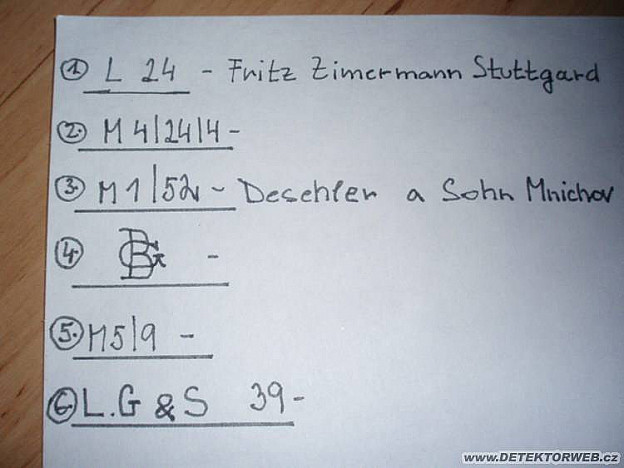 1. L 24 - Fritz Zimermann Stuttgard
2. M 4/24/4 -
3. M 1/52 - Desehler a Sohn Mnichov
4. -
5. M5/9 -
6. L.G & S 39-
www.DETEKTORWEB.cz